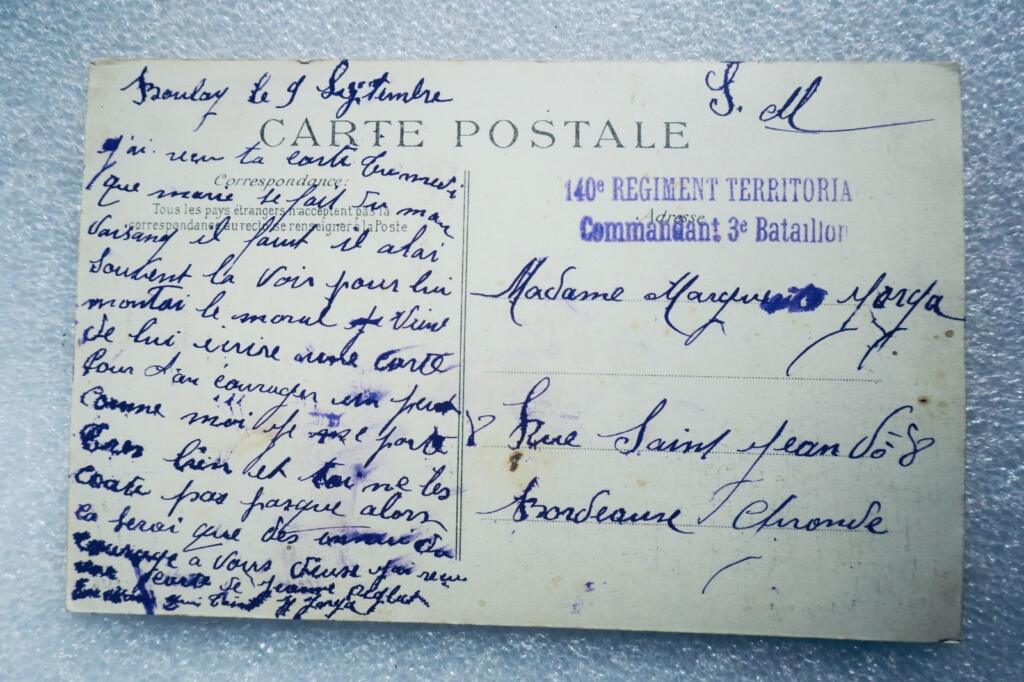 Boulay le 9 Septembre
S. M
CARTE POSTALE
j'ai recu ta carte tu me di
Correspondance:
que marie se fait du mau
Tous les pays étrangers n'acceptent pas la
correspondance au recto, se renseigner à la Poste
vaisang il faut il alai
souvent la voir pour lui
montai le moral je viens
de lui ecrire une carte
Pour l'an courager un peut
comme moi je me porte
tres bien et toi ne les
coute pas pasque alors
ca seroi que des
courage a vous deuse j'ai recu
une carte de Jeanne
140e REGIMENT TERRITORIA
Adresse
Commandant 3e Bataillon
Madame Marguerite
Rue Saint Jean No 8
Bordeaux Gironde